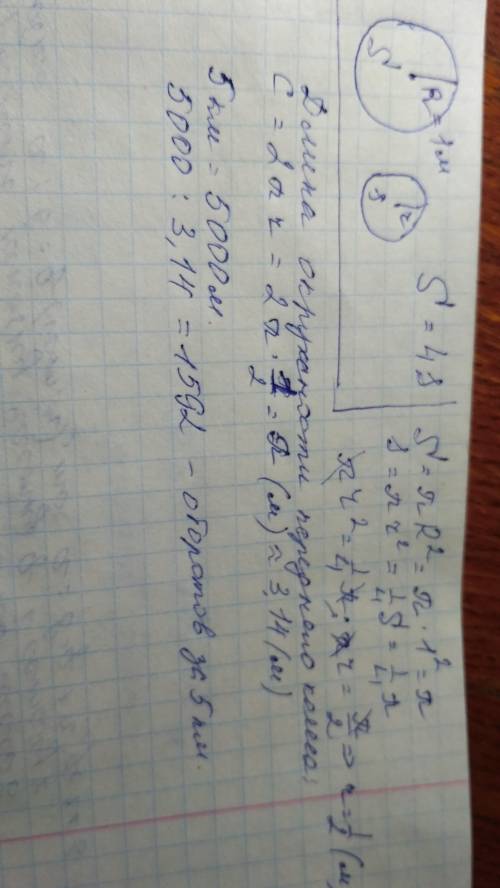 R = 1м
S
r
s
S = 4s
S = πR² = π · 1² = π
s = πr² = 1/4 S = 1/4 π
πr² = 1/4 π; r = π/2 ⇒ r = 1/2 (м
Длина окружности переднего колеса;
C = 2πr = 2π · 1/2 = π (м) ≈ 3,14 (м)
5 км = 5000 м.
5000 : 3,14 = 1592 - оборотов за 5 км.